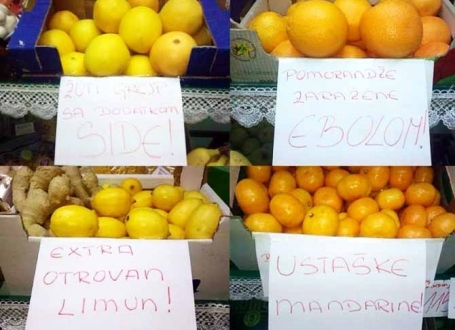 ŽUTI GREJP
SA DODATKOM
SIDE!
POMORANDŽE
ZARAŽENE
EBOLOM!
EXTRA
OTROVAN
LIMUN!
USTAŠKE
MANDARINE!